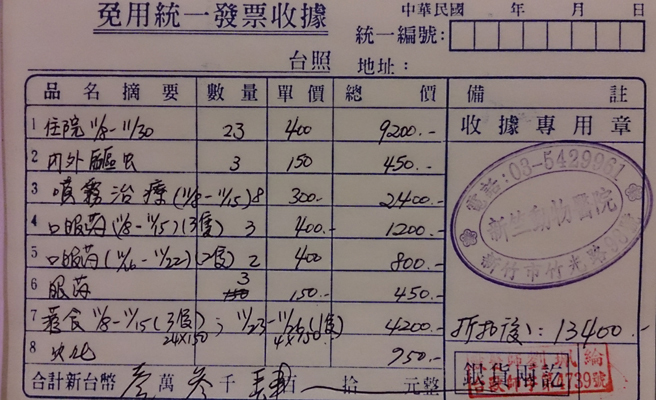 免用統一發票收據
中華民國 年 月 日
統一編號:
台照 地址:
品名摘要 數量 單價 總價 備註
1 住院 11/8-11/30 23 400 9200.- 收據專用章
2 內外驅虫 3 150 450.-
3 噴霧治療(11/8-11/15) 8 300.- 2400.-
4 口服药(11/8-11/15)(3隻) 3 400.- 1200.-
5 口服药(11/16-11/22)(2隻) 2 400 800.-
6 眼药 3 150.- 450.-
7 11/8-11/15(3隻); 11/23-11/26(1隻) 4200.-
24x150 4x150
8 火化 950.-
合計新台幣 壹萬參千肆百 拾 元整
電話:03-5429961
新竺動物醫院
新竹市竹光路
折扣後: 13400.-
銀貨兩訖